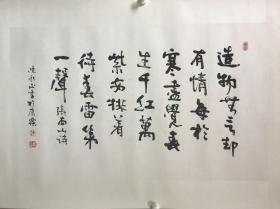 造物無言却
有情每於
寒盡覺春
生千紅萬
紫安排着
待春雷第
一聲 張南山詩